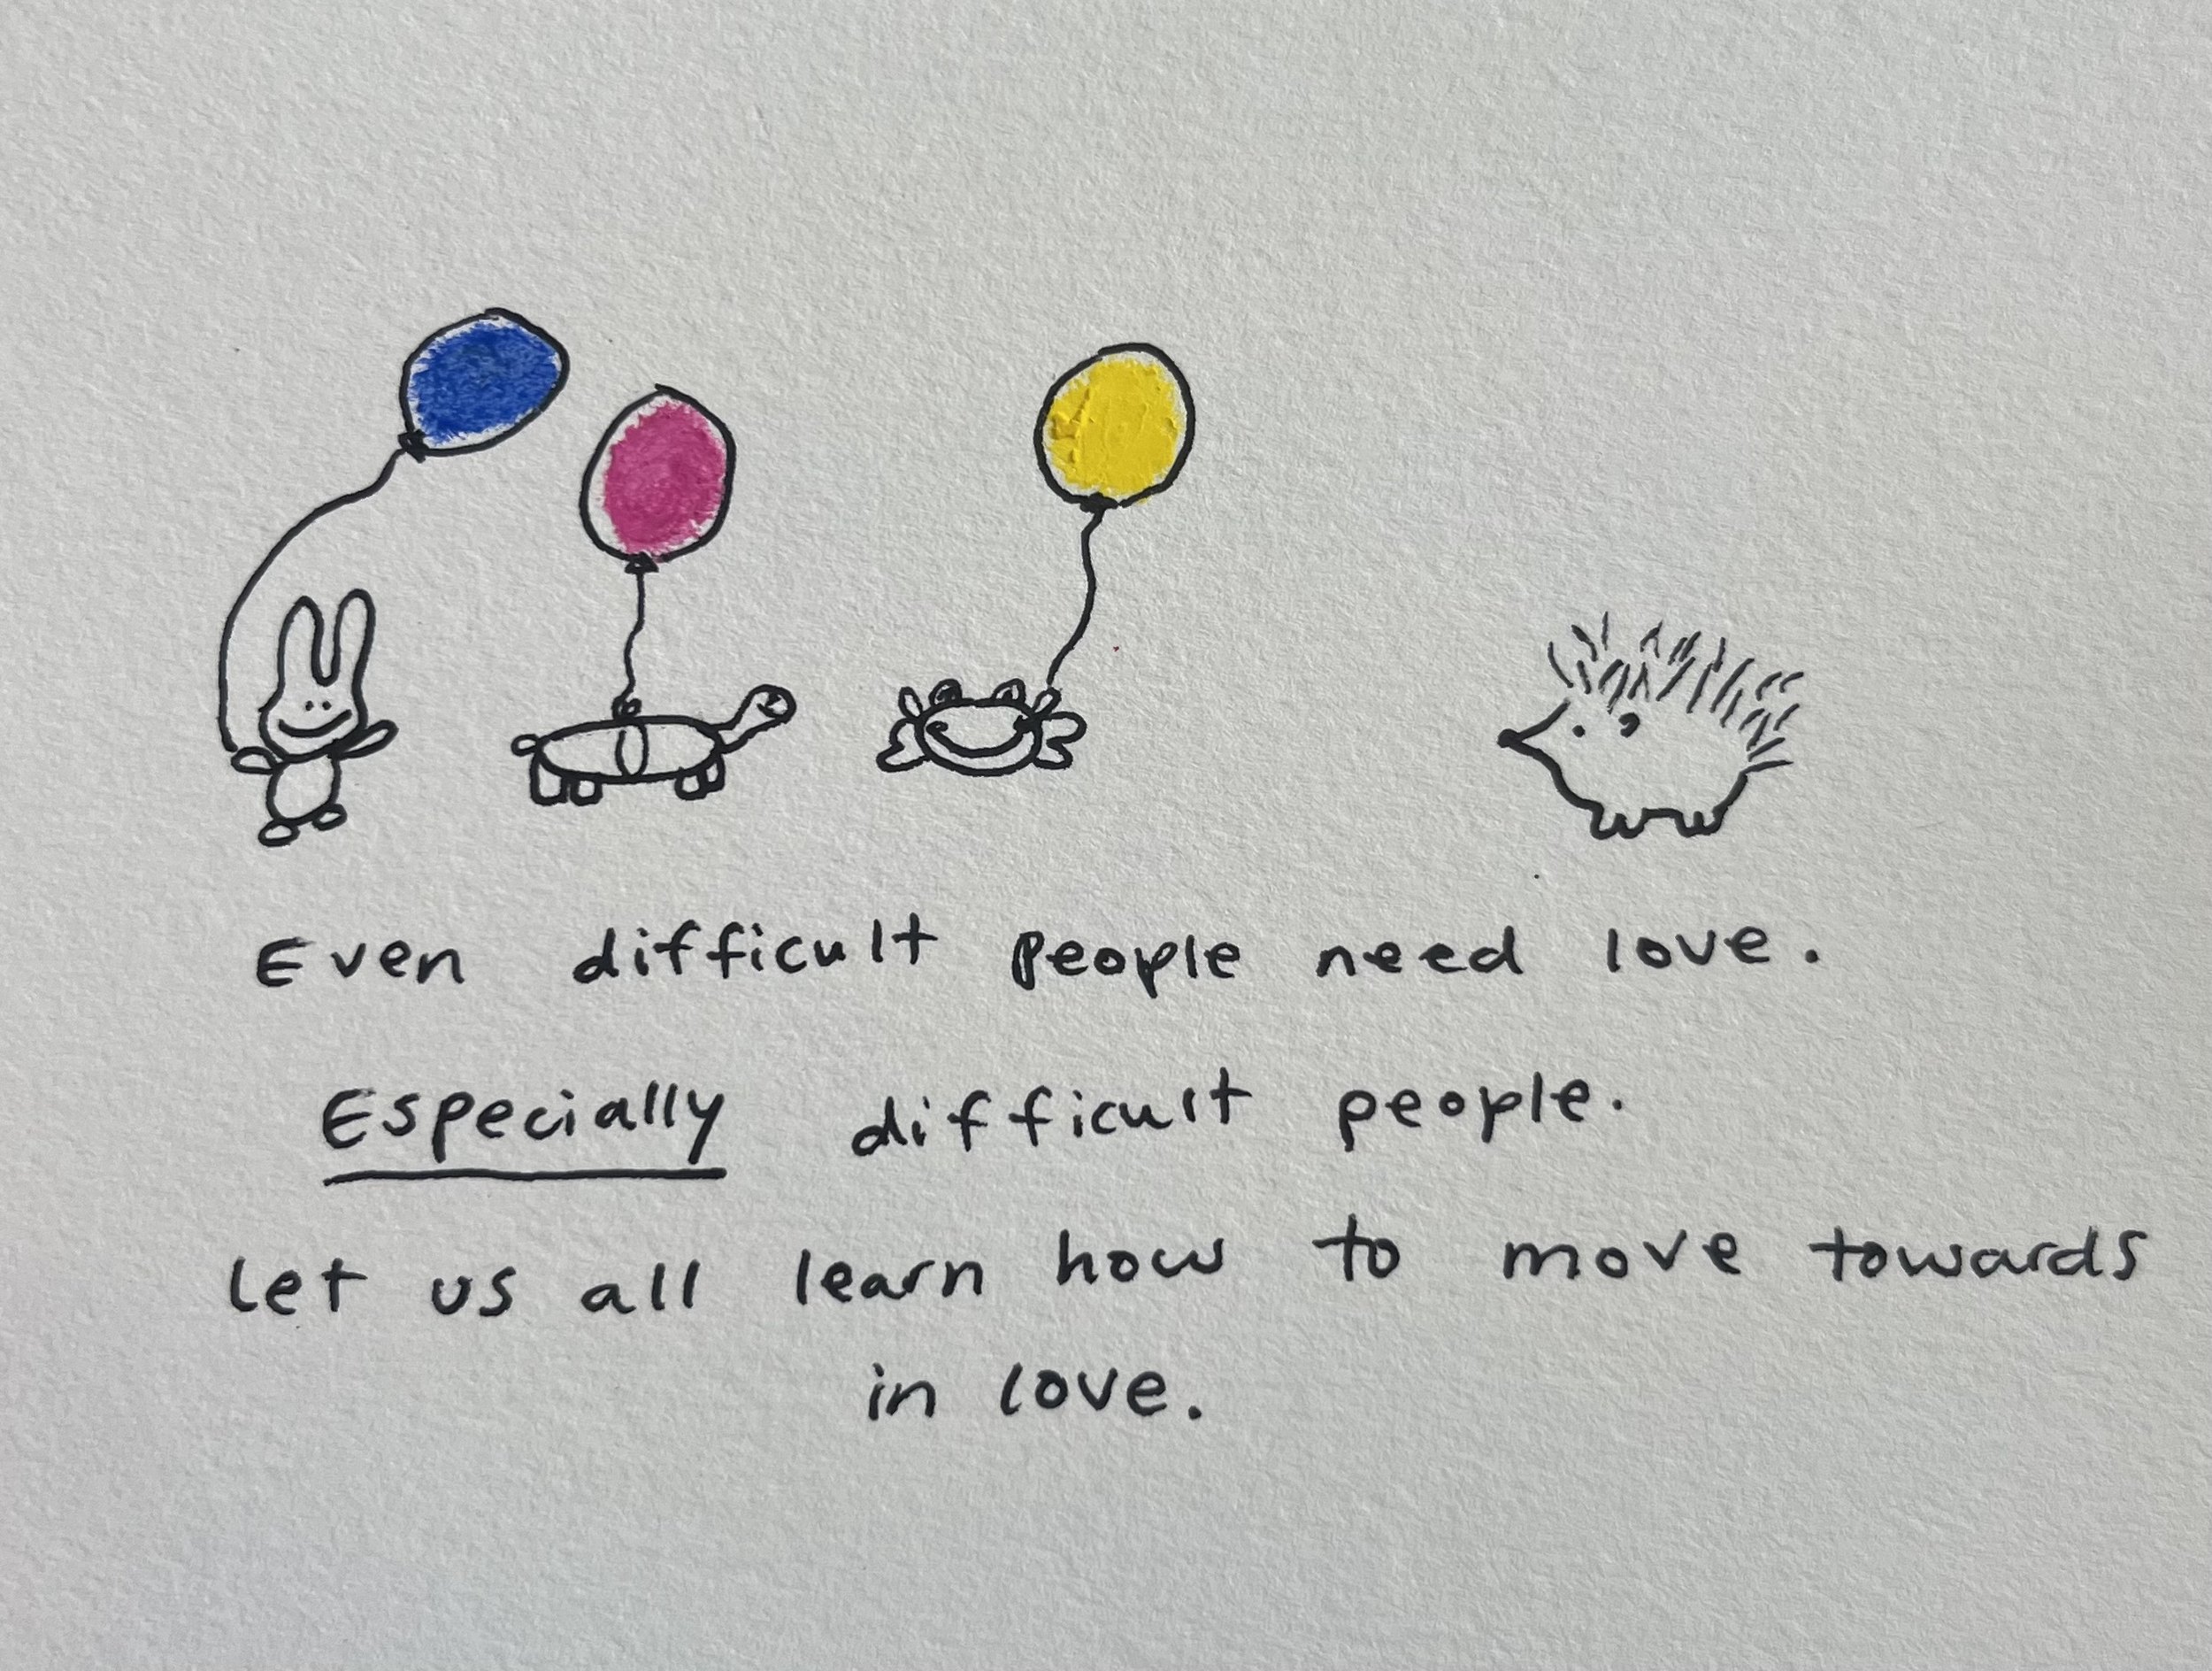 Even difficult people need love.
Especially difficult people.
Let us all learn how to move towards
in love.